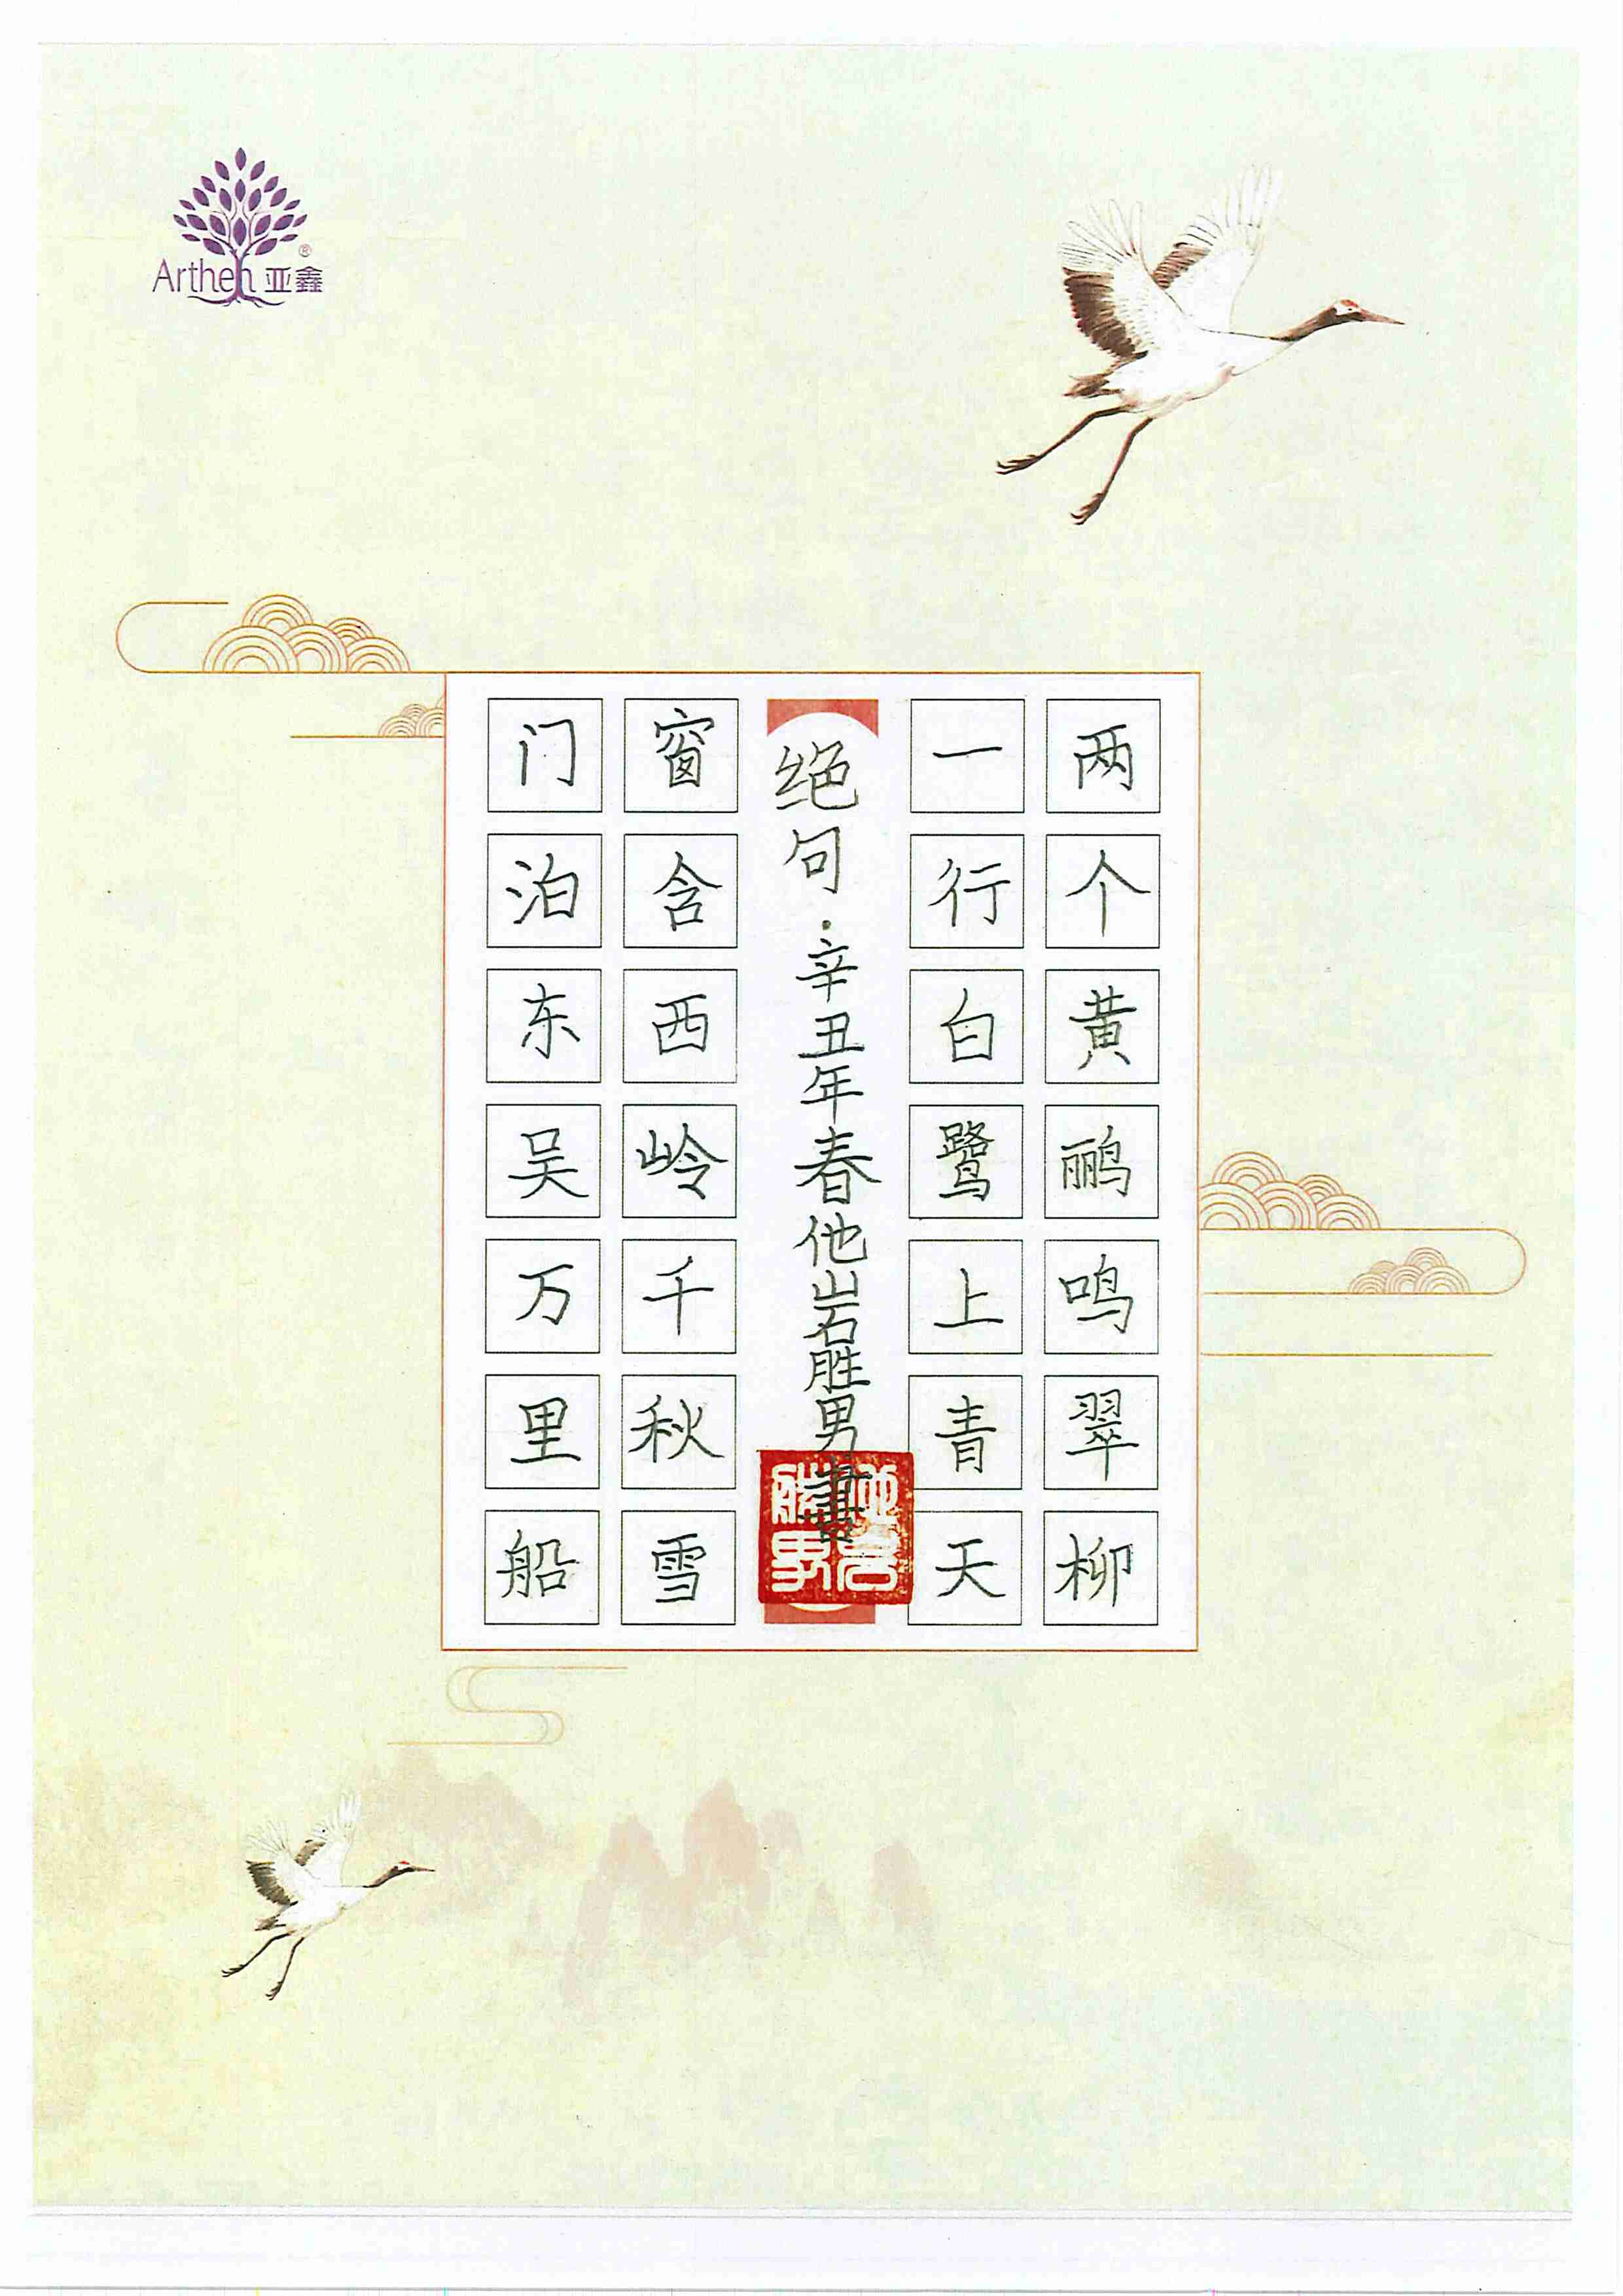 Arthen 亚鑫®
两个黄鹂鸣翠柳
一行白鹭上青天
绝句·辛丑年春他岩胜男書
窗含西岭千秋雪
门泊东吴万里船